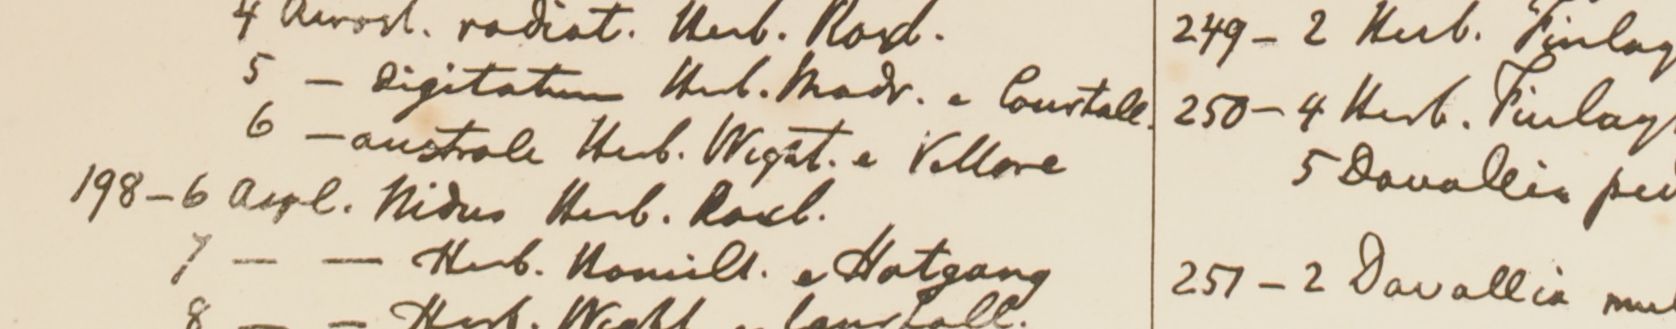 4 Acrost. radiat. Herb. Roxb.
5 — digitatum Herb. Madr. e Courtall.
6 — australe Herb. Wight. e Vellore
198–6 Aspl. Nidus Herb. Roxb.
7 — — Herb. Hamilt. e Hatgang
8 — — Herb. Wight e Courtall.
249–2 Herb. Finlay
250–4 Herb. Finlay
5 Davallia
251–2 Davallia